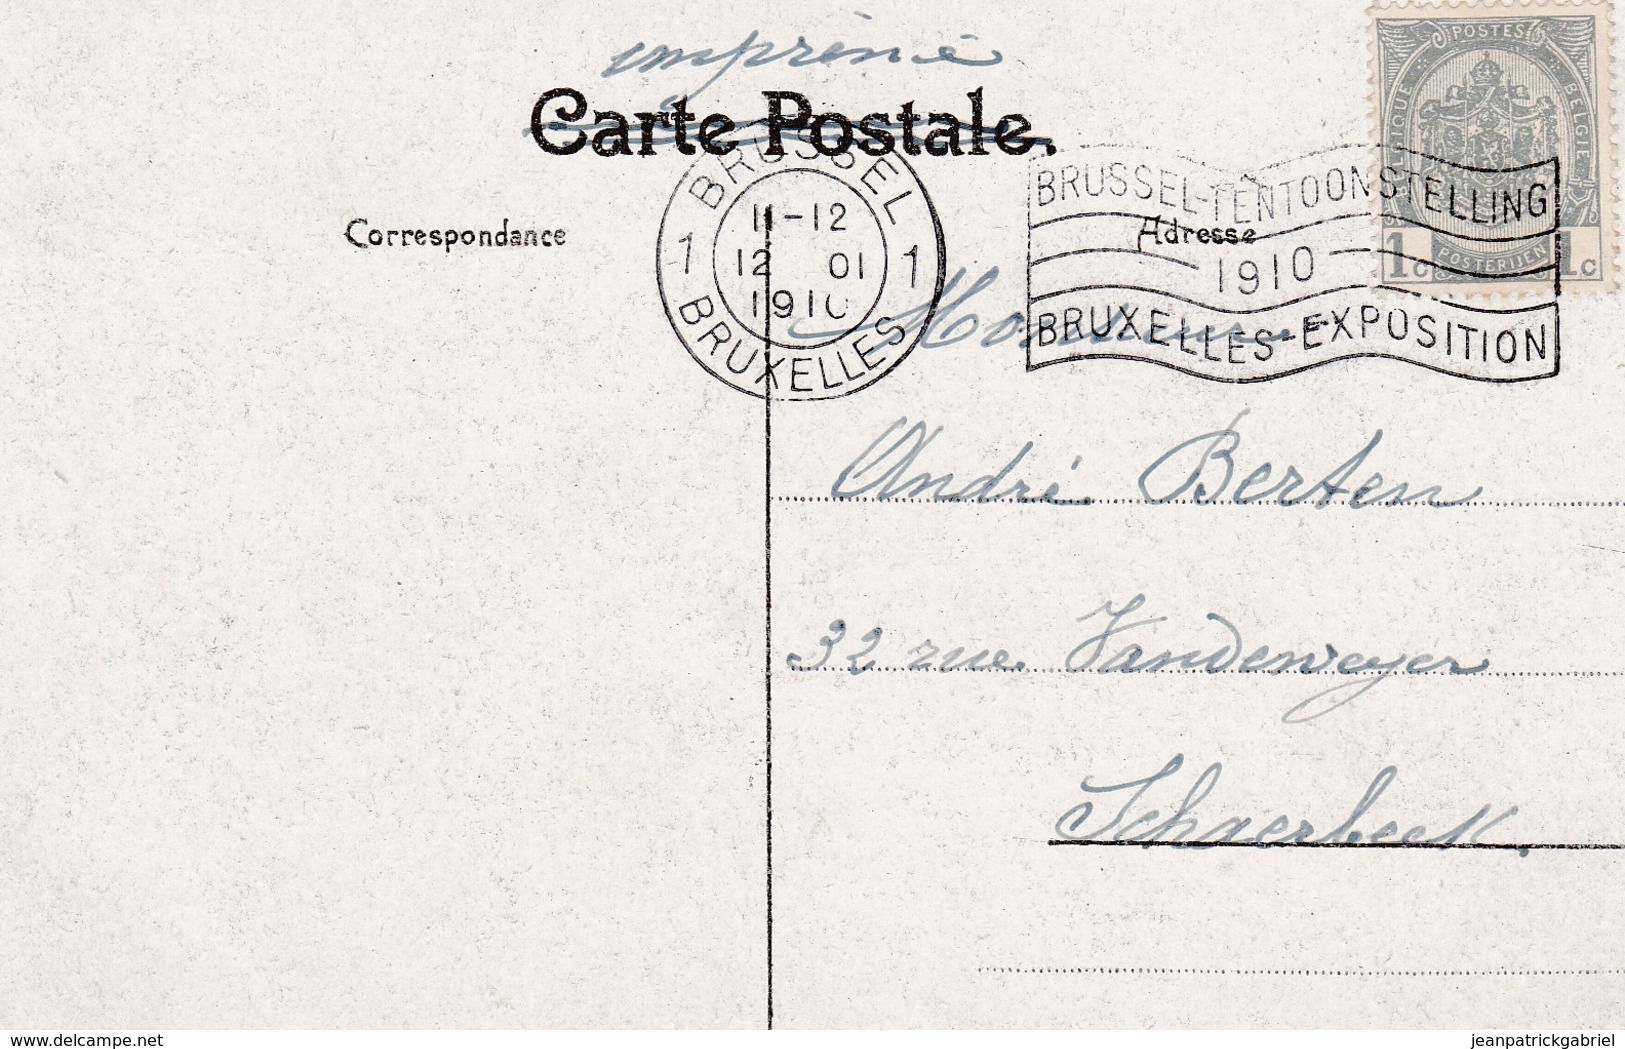 imprimé
Carte Postale.
POSTES
BELGIQUE
BELGIE
1c POSTERIJEN 1c
BRUSSEL
11-12
1 12 01 1
1910
BRUXELLES
BRUSSEL-TENTOONSTELLING
1910
BRUXELLES-EXPOSITION
Correspondance
Adresse
Monsieur
André Berten
32 rue Vandeweyer
Schaerbeek.
delcampe.net
jeanpatrickgabriel